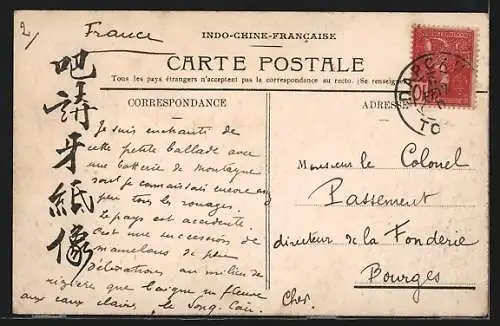 2/
France
INDO-CHINE-FRANÇAISE
CARTE POSTALE
Tous les pays étrangers n'acceptent pas la correspondance au recto. (Se renseigner
CORRESPONDANCE
ADRESSE
吧
請
牙
紙
像
Je suis enchanté de
cette petite ballade avec
une batterie de montagne
dont je connaissais encore un
peu tous les rouages.
Le pays est accidenté.
C'est une succession de
mamelons de peu
d'élévation au milieu de
que baigne un fleuve
aux eaux claires, le Song-Cau.
Monsieur le Colonel
Passement
directeur de la Fonderie
Bourges
Cher.
10
TO